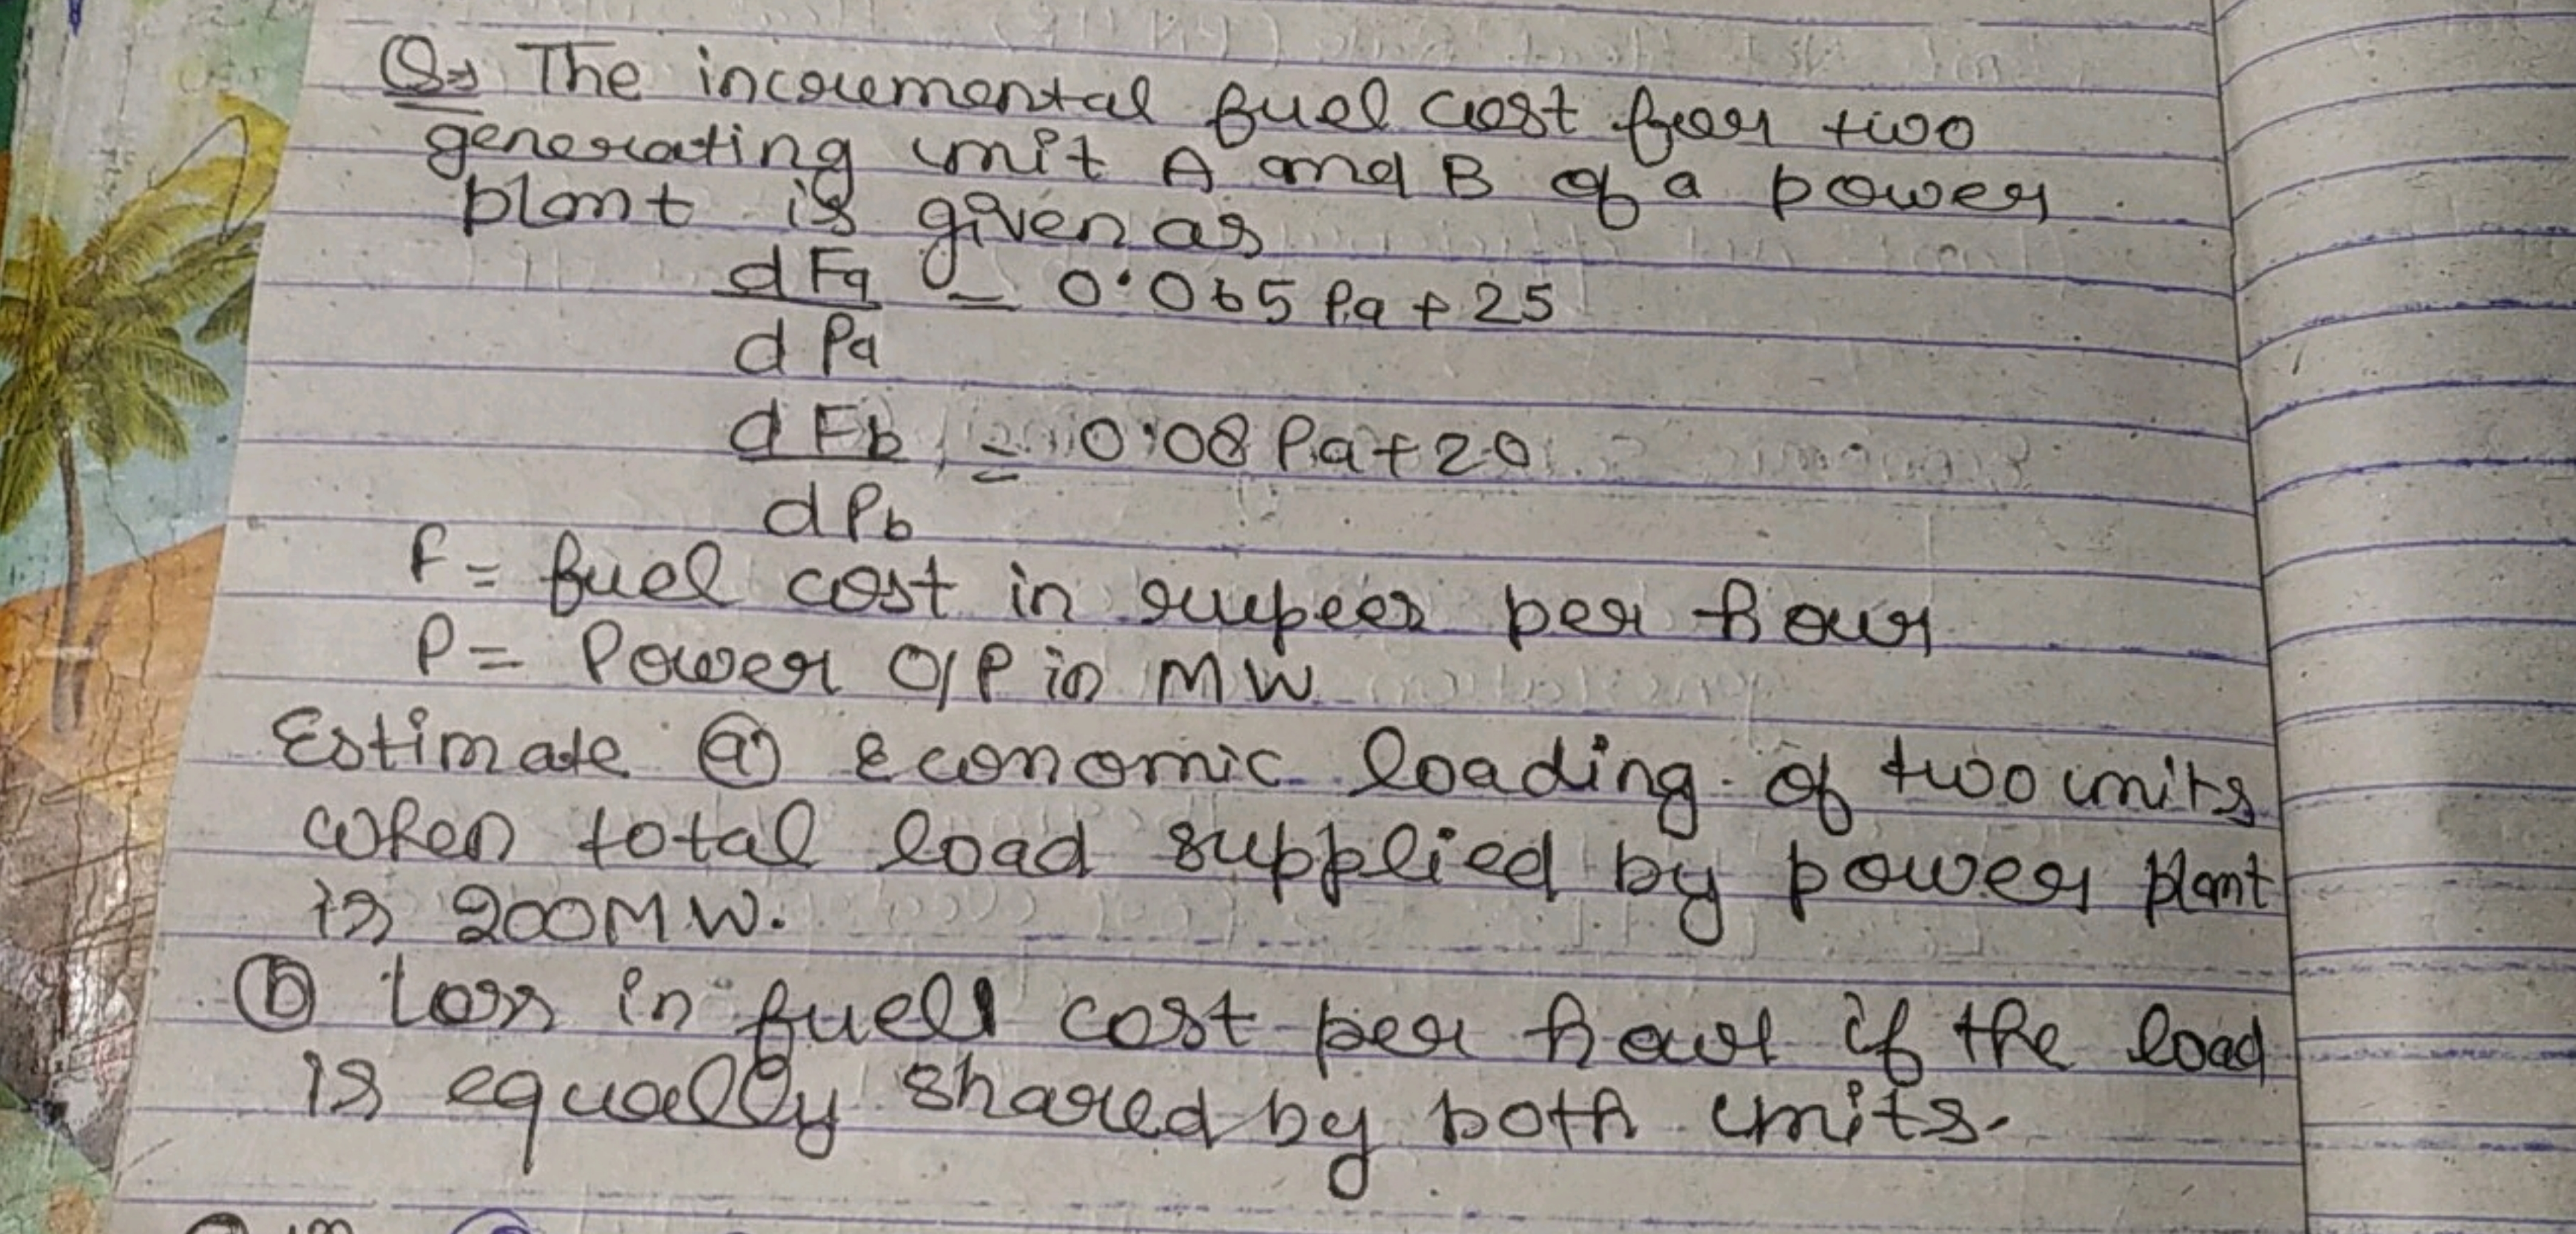 Q⇒ The incremental fuel cost for two
generating unit A and B of a power
plant is given as
dFa = 0.065 Pa + 25
dPa
dFb = 0.08 Pa + 20
dPb
F = fuel cost in rupees per hour
P = Power O/P in MW
Estimate ⓐ Economic loading of two units
when total load supplied by power plant
is 200MW.
ⓑ Loss in fuel cost per hour if the load
is equally shared by both units.